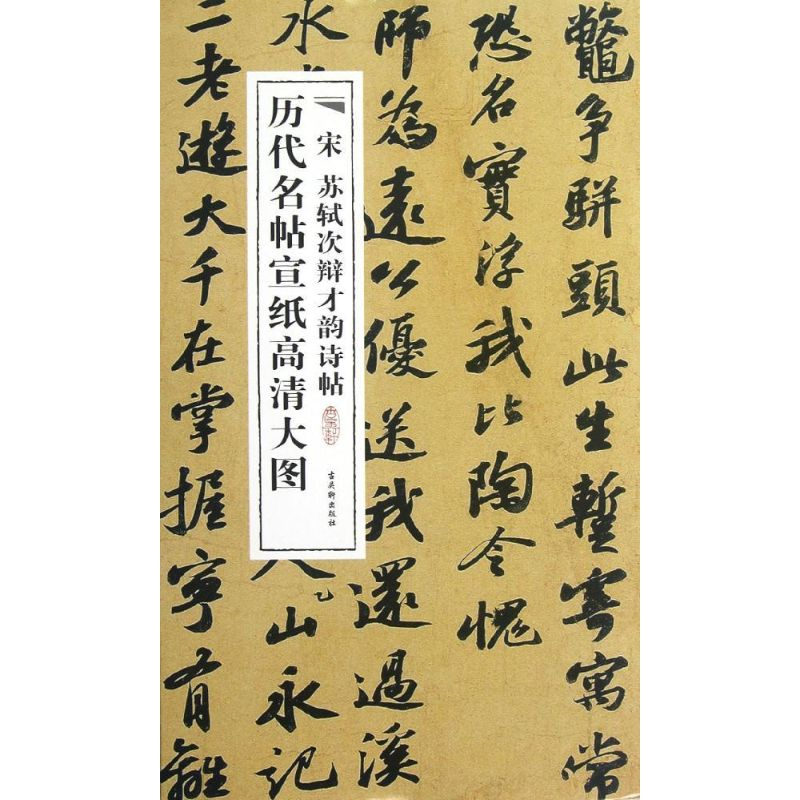 鼈争駢頭此生蹔寄寓常
恐名實浮我比陶令愧
師為遠公優送我還過溪
水
人山永記
二老遊大千在掌握寧有離
宋 苏轼次辩才韵诗帖
古吴轩出版社
历代名帖宣纸高清大图